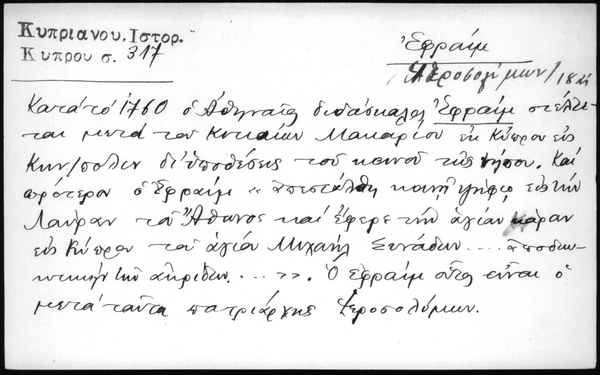 Κυπριανου, Ιστορ.
Κυπρου σ. 317
Ἐφραὶμ
Ἱεροσολύμων/
Κατὰ τὸ 1760 ὁ Ἀθηναῖος διδάσκαλος Ἐφραὶμ στέλλε-
ται μετὰ τοῦ Κιτιαίων Μακαρίου ἐκ Κύπρου εἰς
Κων/πολιν δι' ὑποθέσεις τοῦ κοινοῦ τῆς νήσου. Καὶ
πρότερον ὁ Ἐφραὶμ « ἀπεστάλθη κοινῇ ψήφῳ εἰς τὴν
Λαύραν τοῦ Ἄθωνος καὶ ἔφερε τὴν ἁγίαν κάραν
εἰς Κύπρον τοῦ ἁγίου Μιχαὴλ Συνάδων.... ἀποδιω-
κτικὴν τῶν ἀκρίδων.... ». Ὁ Ἐφραὶμ οὗτος εἶναι ὁ
μετὰ ταῦτα πατριάρχης Ἱεροσολύμων.